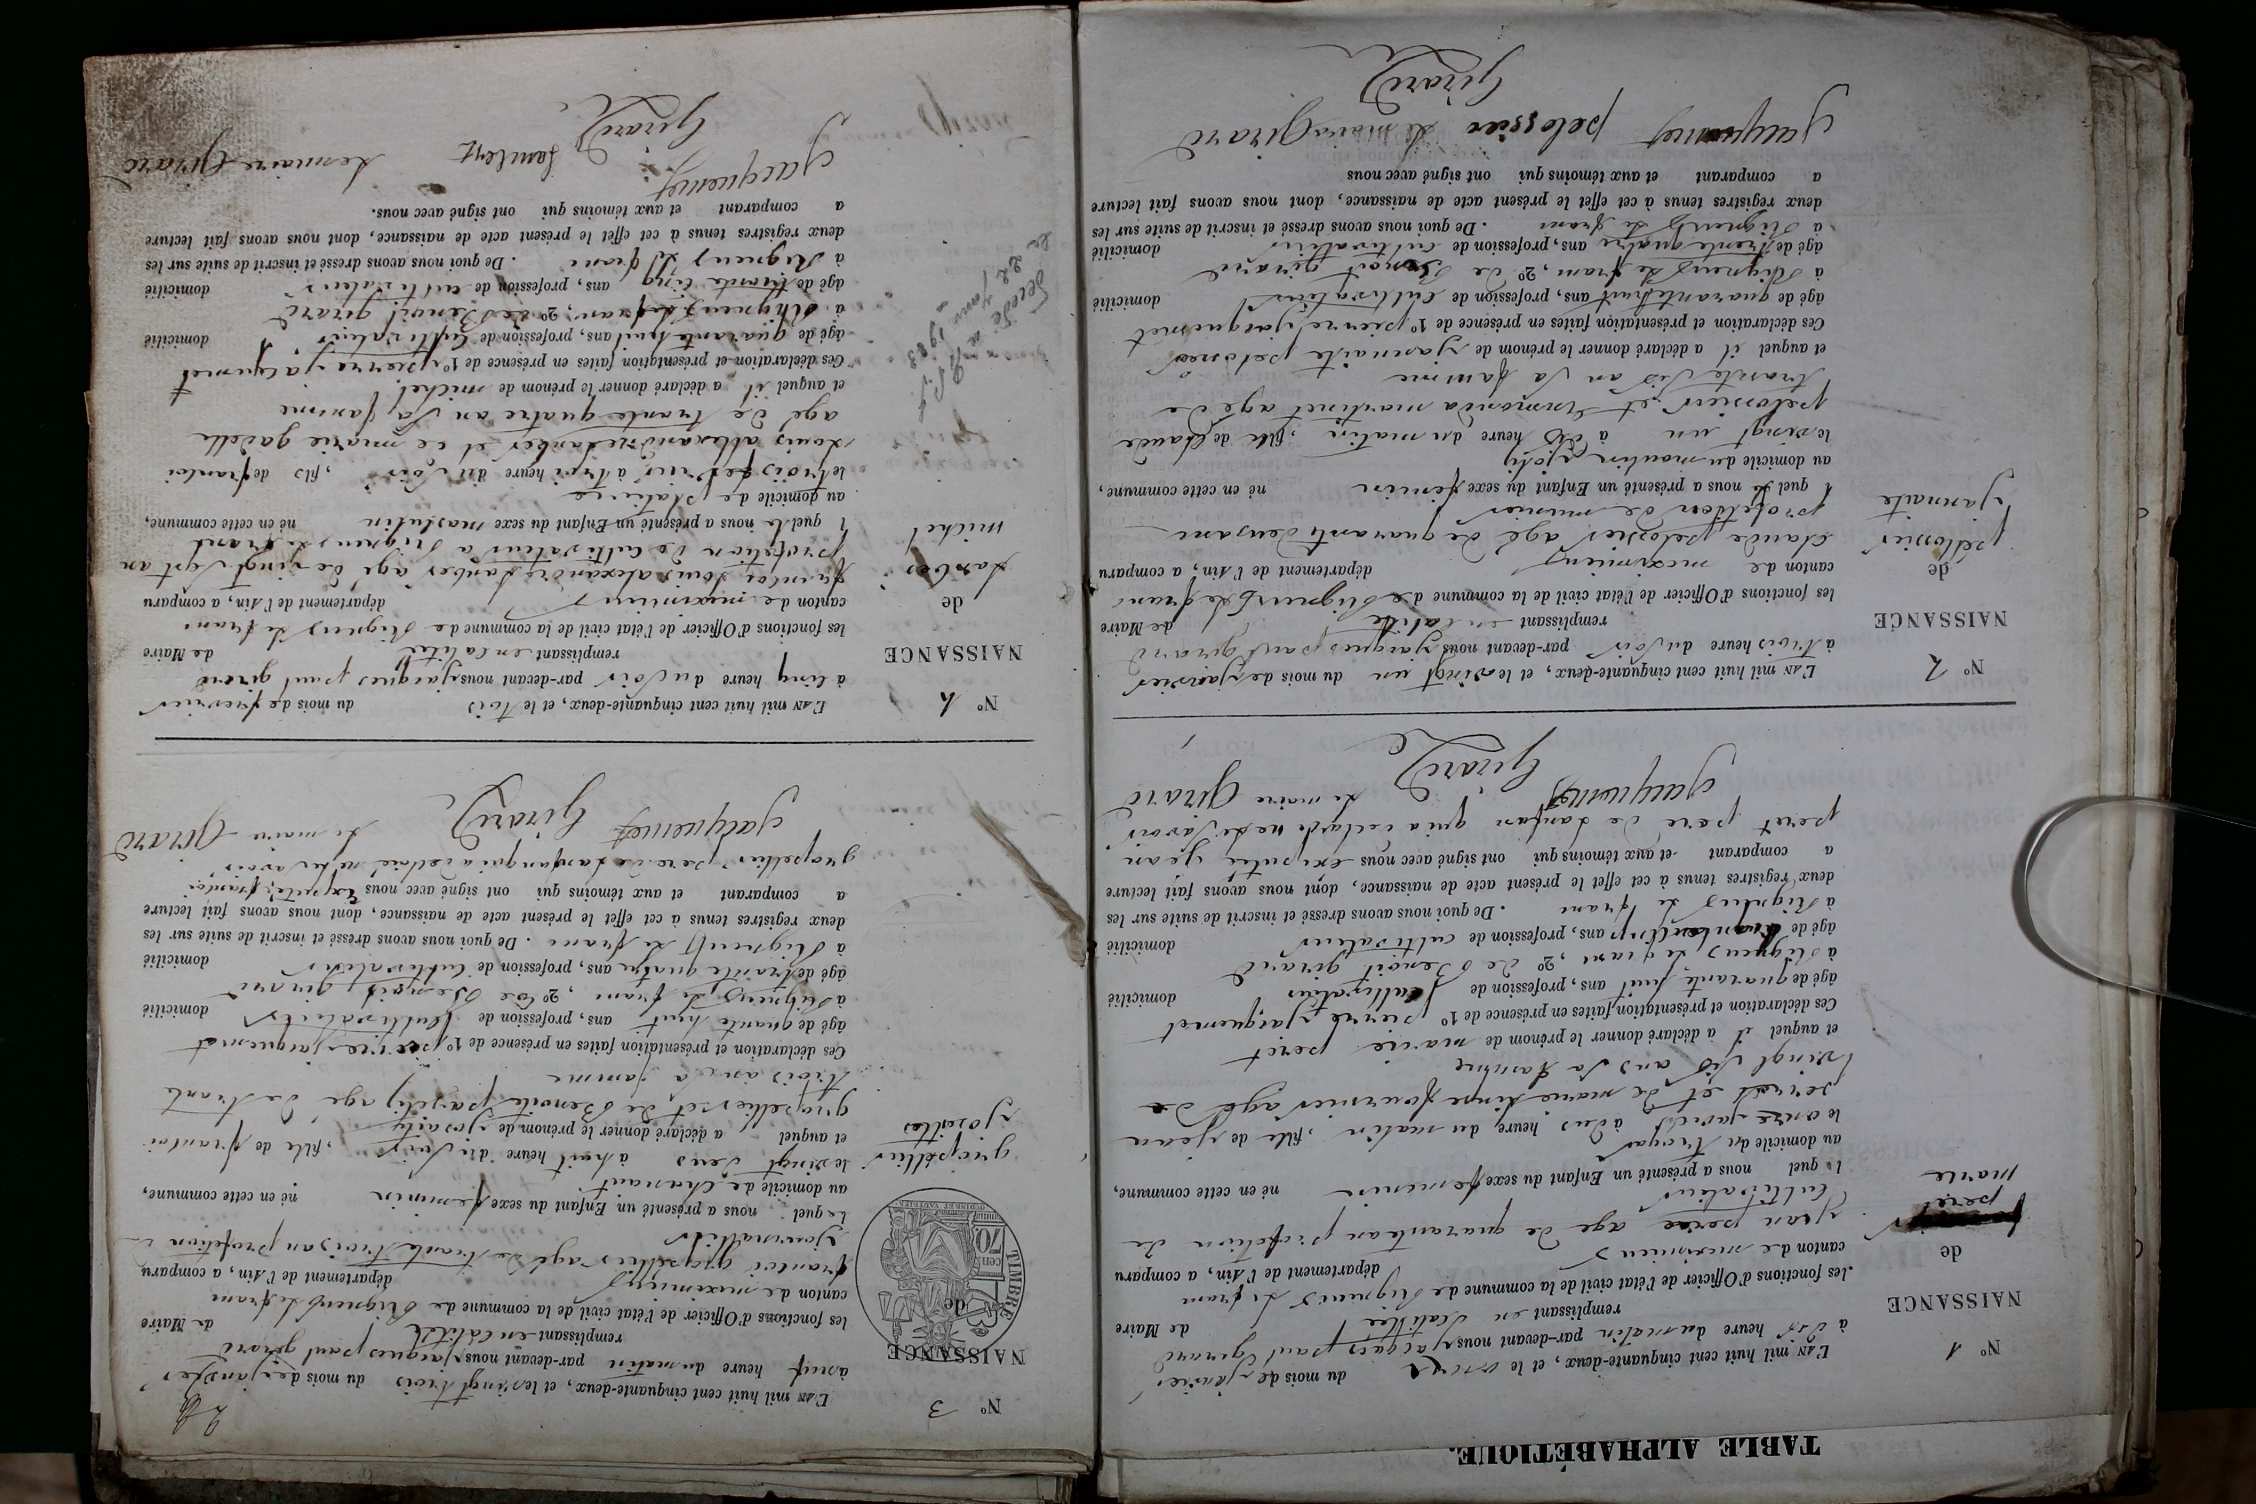 TABLE ALPHABÉTIQUE.
N° 1
NAISSANCE
de
peret
marie
L'AN mil huit cent cinquante-deux, et le onze du mois de janvier
à dix heure du matin par-devant nous jaques paul girard
remplissant en calitée de Maire
les fonctions d'Officier de l'état civil de la commune de Rigneux le franc
canton de meximieux département de l'Ain, a comparu
jean peret age de quarante an profetion de
cultivateur
l quel nous a présenté un Enfant du sexe feminin né en cette commune,
au domicile du
le onze janvier à dus heure du matin, fille de jean
peret et de marie fournier agé de
vingt sis ans sa famme
et auquel il a déclaré donner le prénom de marie peret
Ces déclaration et présentation faites en présence de 1° pierre jaquemet
âgé de quarante huit ans, profession de cultivateur domicilié
à Rigneux le franc, 2° de Benoit girard
âgé de ans, profession de cultivateur domicilié
à Rigneux le franc. De quoi nous avons dressé et inscrit de suite sur les
deux registres tenus à cet effet le présent acte de naissance, dont nous avons fait lecture
a comparant et aux témoins qui ont signé avec nous excepté jean
peret pere de lanfan qui a declaré ne le savoir
Jacquemet Girard Le maire Girard
N° 2
NAISSANCE
de
pelossier
jannaite
L'AN mil huit cent cinquante-deux, et le vingt un du mois de janvier
à trois heure du soir par-devant nous jaques paul girard
remplissant en calité de Maire
les fonctions d'Officier de l'état civil de la commune de Rigneux le franc
canton de meximieux département de l'Ain, a comparu
claude pelossier agé de quarante deux ans
profetion de munier
l quel nous a présenté un Enfant du sexe feminin né en cette commune,
au domicile du moulin
le vingt un à dis heure du matin, fille de claude
pelossier et martinet agé de
trante sis an sa famme
et auquel il a déclaré donner le prénom de jannaite pelossier
Ces déclaration et présentation faites en présence de 1° pierre jaquemet
âgé de quarante huit ans, profession de cultivateur domicilié
à Rigneux le franc, 2° de Benoit girard
âgé de trente quatre ans, profession de cultivateur domicilié
à Rigneux le franc. De quoi nous avons dressé et inscrit de suite sur les
deux registres tenus à cet effet le présent acte de naissance, dont nous avons fait lecture
a comparant et aux témoins qui ont signé avec nous
Jacquemet pelossier le maire Girard
Girard
N° 3
NAISSANCE
de
TIMBRE
70
CEN
gropellier
josaitte
L'AN mil huit cent cinquante-deux, et le vingt trois du mois de janvier
à neuf heure du matin par-devant nous jaques paul girard
remplissant en calité de Maire
les fonctions d'Officier de l'état civil de la commune de Rigneux le franc
canton de meximieux département de l'Ain, a comparu
françoi gropellier agé de trante trois an profetion
journallier
Le quel nous a présenté un Enfant du sexe feminin né en cette commune,
au domicile de
le vingt deus à huit heure du soir, fille de françoi
et auquel a déclaré donner le prénom de josaitte
gropellier et de Benoite agé de trante
trois an sa famme
Ces déclaration et présentation faites en présence de 1° pierre jaquemet
âgé de quarante huit ans, profession de cultivateur domicilié
à Rigneux le franc, 2° de Benoit girard
âgé de trante quatre ans, profession de cultivateur domicilié
à Rigneux le franc. De quoi nous avons dressé et inscrit de suite sur les
deux registres tenus à cet effet le présent acte de naissance, dont nous avons fait lecture
a comparant et aux témoins qui ont signé avec nous excepté françoi
gropellier pere de lanfan qui a declaré ne le savoir
Jacquemet Girard Le maire Girard
N° 4
NAISSANCE
de
michel
L'AN mil huit cent cinquante-deux, et le trois du mois de fevrier
à cinq heure du soir par-devant nous jaques paul girard
remplissant en calité de Maire
les fonctions d'Officier de l'état civil de la commune de Rigneux le franc
canton de meximieux département de l'Ain, a comparu
françoi louis alexandre agé de vingt sept an
profetion de cultivateur a Rigneux le franc
l quel nous a présenté un Enfant du sexe masculin né en cette commune,
au domicile de
le trois fevrier à troi heure du soir, fils de françoi
Louis allexandre et de marie
agé de trante quatre an sa famme
et auquel il a déclaré donner le prénom de michel
Ces déclaration et présentation faites en présence de 1° pierre jaquemet
âgé de quarante huit ans, profession de cultivateur domicilié
à Rigneux le franc, 2° de Benoit girard
âgé de trante cinq ans, profession de cultivateur domicilié
à Rigneux le franc. De quoi nous avons dressé et inscrit de suite sur les
deux registres tenus à cet effet le présent acte de naissance, dont nous avons fait lecture
a comparant et aux témoins qui ont signé avec nous.
Jacquemet Lambert Le maire Girard
Girard